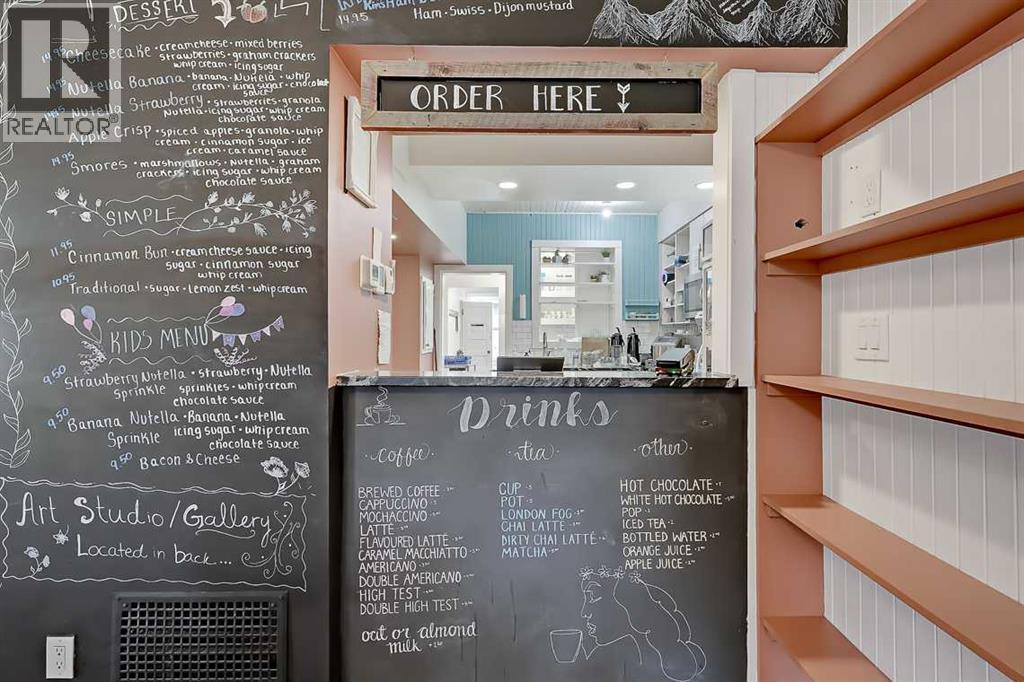 DESSERT
14.95
Ham · Swiss · Dijon mustard
R
REALTOR®
14.95 Cheesecake · creamcheese · mixed berries
strawberries · graham crackers
whip cream · icing sugar
14.95 Nutella Banana · banana · Nutella · whip
cream · icing sugar · chocolate
sauce
Nutella Strawberry · strawberries · granola
Nutella · icing sugar · whip cream
chocolate sauce
Apple Crisp · spiced apples · granola · whip
cream · cinnamon sugar · ice
cream · caramel sauce
14.95 Smores · marshmallows · Nutella · graham
crackers · icing sugar · whip cream
chocolate sauce
SIMPLE
11.95 Cinnamon Bun · creamcheese sauce · icing
sugar · cinnamon sugar
whip cream
10.95 Traditional · sugar · lemon zest · whipcream
KIDS MENU
9.50 Strawberry Nutella · strawberry · Nutella
sprinkles · whipcream
chocolate sauce
9.50 Banana Nutella · Banana · Nutella
Sprinkle icing sugar · whip cream
chocolate sauce
9.50 Bacon & Cheese
Art Studio/Gallery
Located in back...
ORDER HERE
Drinks
coffee
BREWED COFFEE
CAPPUCCINO
MOCHACCINO
LATTE
FLAVOURED LATTÉ
CARAMEL MACCHIATTO
AMERICANO
DOUBLE AMERICANO
HIGH TEST
DOUBLE HIGH TEST
oat or almond
milk
tea
CUP
POT
LONDON FOG
CHAI LATTE
DIRTY CHAI LATTÉ
MATCHA
other
HOT CHOCOLATE
WHITE HOT CHOCOLATE
POP
ICED TEA
BOTTLED WATER
ORANGE JUICE
APPLE JUICE